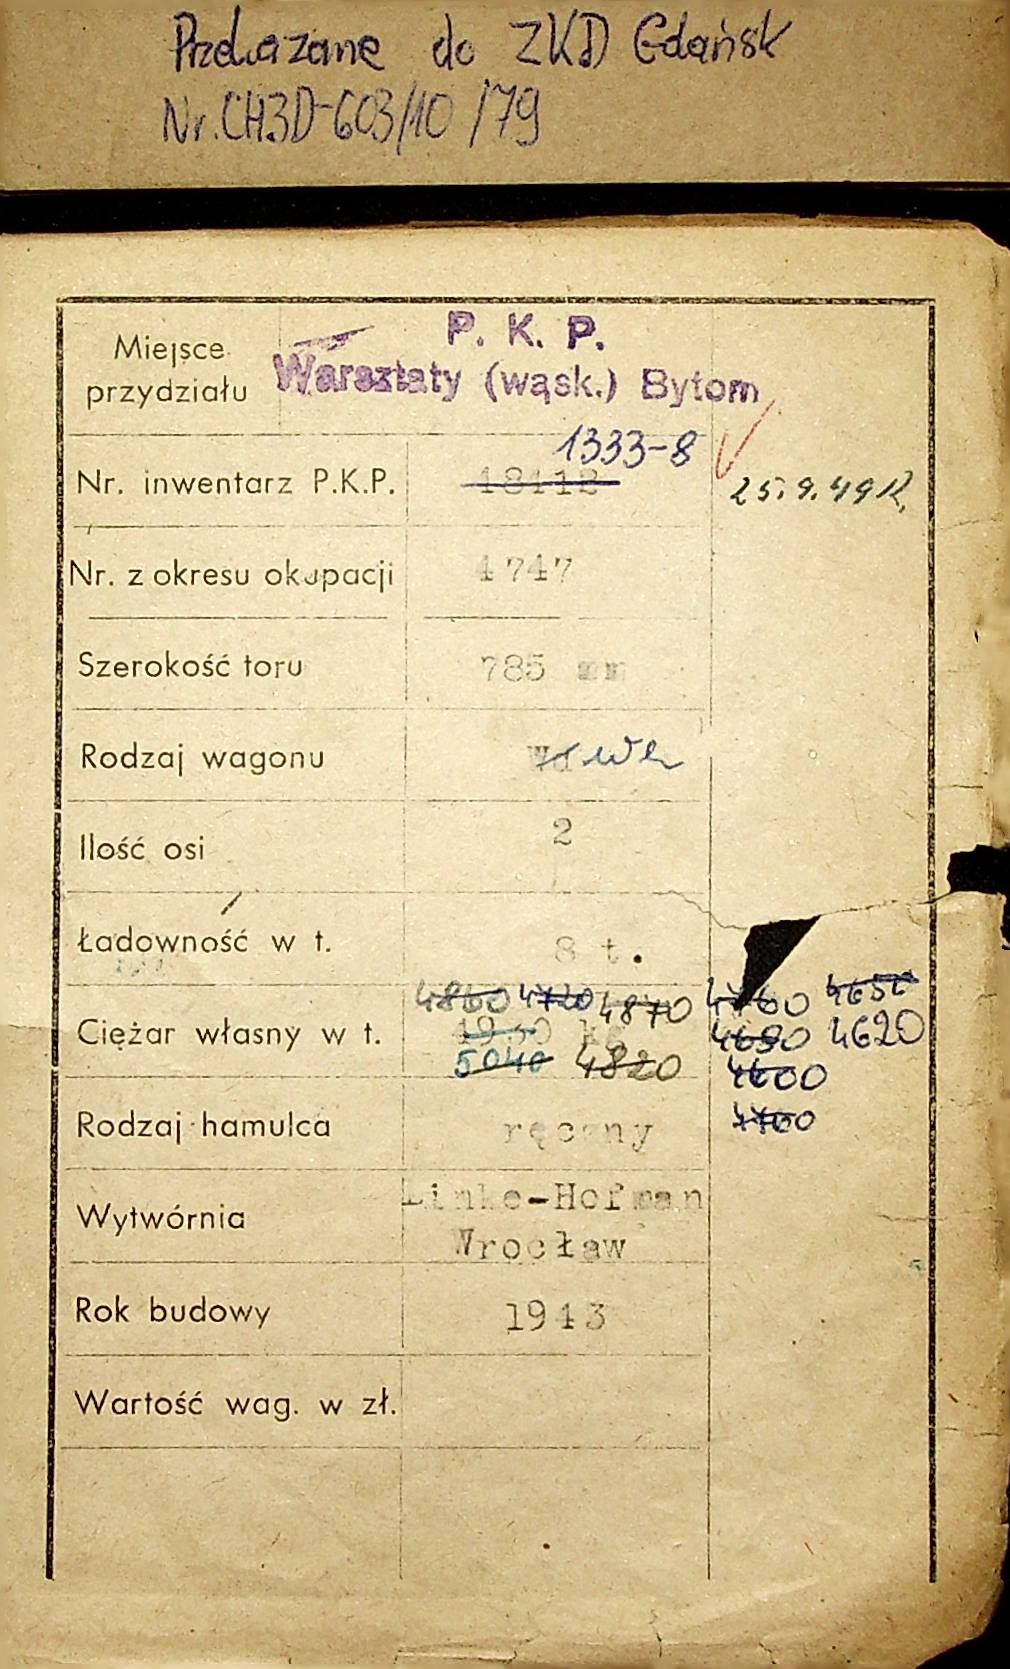 Przekazane do ZKD Gdańsk
Nr. CH3D-603/10/79
P. K. P.
Miejsce przydziału Warsztaty (wąsk.) Bytom
1333-8
Nr. inwentarz P.K.P. 18112 25.9.49 R.
Nr. z okresu okupacji 4747
Szerokość toru 785 mm
Rodzaj wagonu Wd Wh
Ilość osi 2
Ładowność w t. 8 t.
4860 4720 4870 4760 4650
Ciężar własny w t. kg 4690 4620
5040 4820 4600
Rodzaj hamulca ręczny 4700
Linke-Hofman
Wytwórnia
Wrocław
Rok budowy 1943
Wartość wag. w zł.